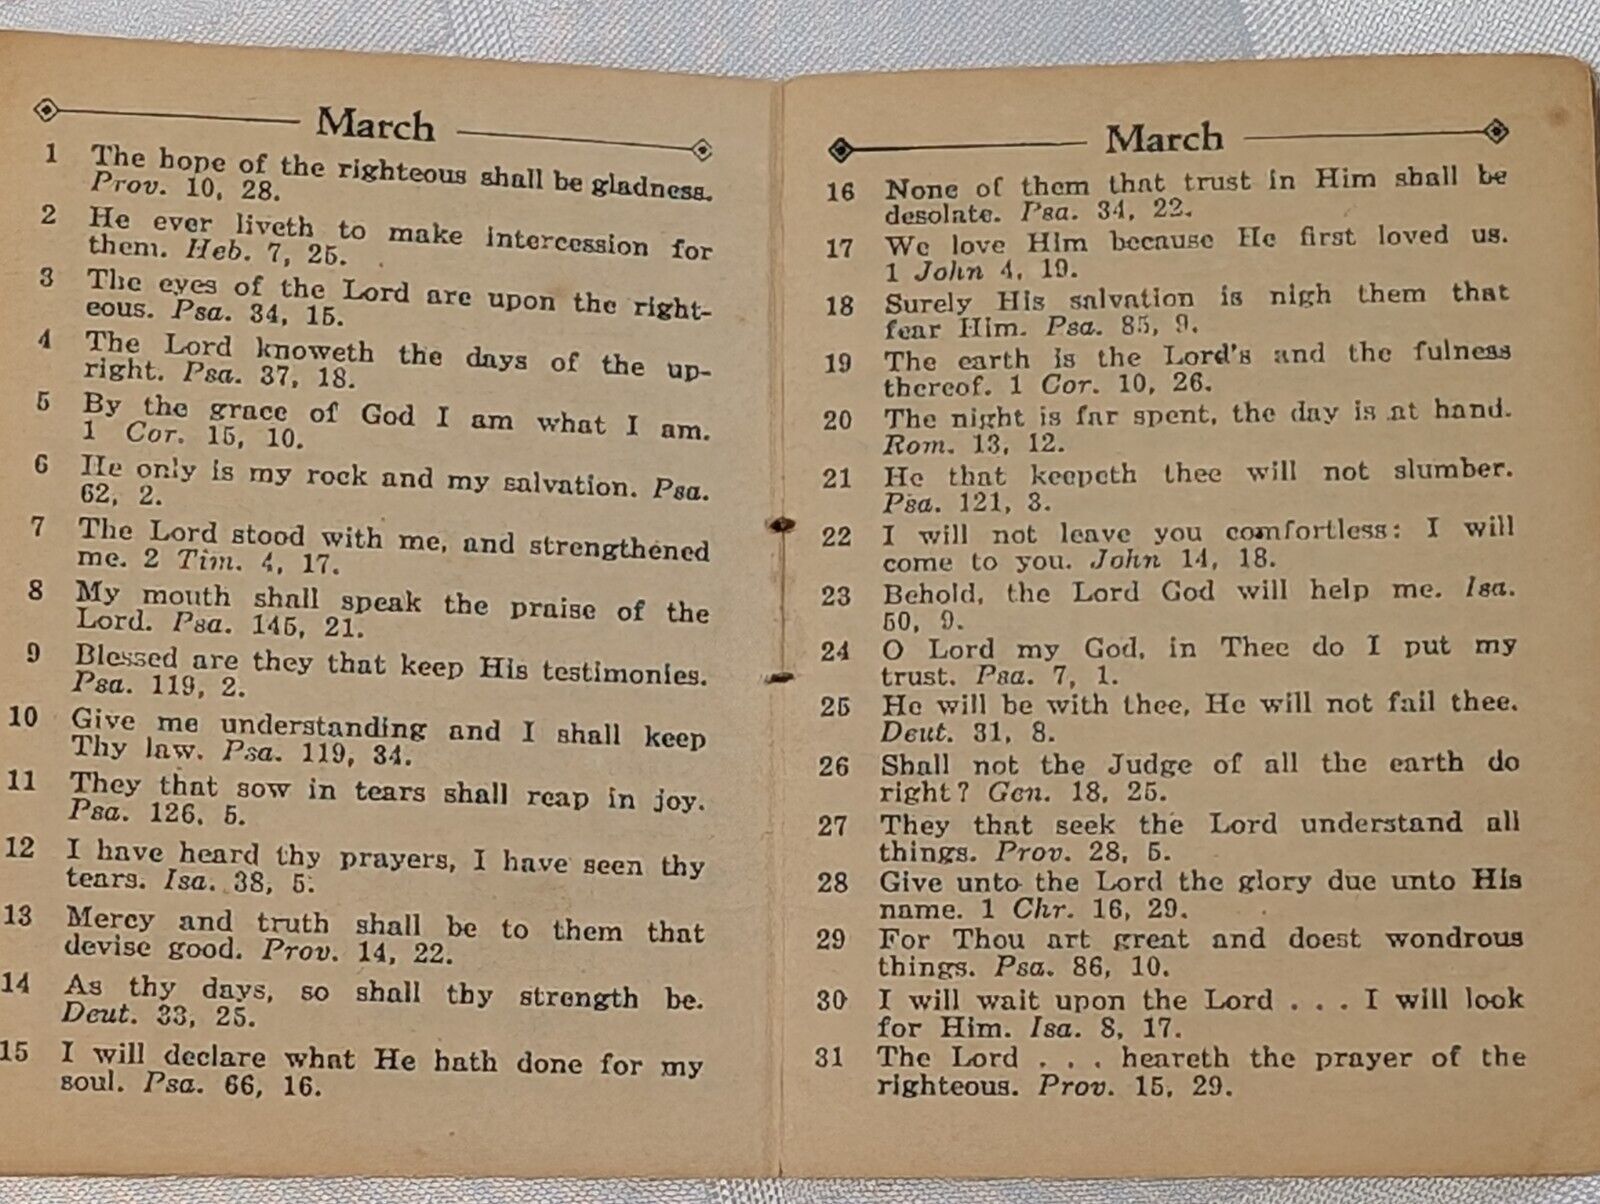 March
1 The hope of the righteous shall be gladness.
Prov. 10, 28.
2 He ever liveth to make intercession for
them. Heb. 7, 25.
3 The eyes of the Lord are upon the right-
eous. Psa. 34, 15.
4 The Lord knoweth the days of the up-
right. Psa. 37, 18.
5 By the grace of God I am what I am.
1 Cor. 15, 10.
6 He only is my rock and my salvation. Psa.
62, 2.
7 The Lord stood with me, and strengthened
me. 2 Tim. 4, 17.
8 My mouth shall speak the praise of the
Lord. Psa. 145, 21.
9 Blessed are they that keep His testimonies.
Psa. 119, 2.
10 Give me understanding and I shall keep
Thy law. Psa. 119, 34.
11 They that sow in tears shall reap in joy.
Psa. 126, 5.
12 I have heard thy prayers, I have seen thy
tears. Isa. 38, 5.
13 Mercy and truth shall be to them that
devise good. Prov. 14, 22.
14 As thy days, so shall thy strength be.
Deut. 33, 25.
15 I will declare what He hath done for my
soul. Psa. 66, 16.
March
16 None of them that trust in Him shall be
desolate. Psa. 34, 22.
17 We love Him because He first loved us.
1 John 4, 19.
18 Surely His salvation is nigh them that
fear Him. Psa. 85, 9.
19 The earth is the Lord's and the fulness
thereof. 1 Cor. 10, 26.
20 The night is far spent, the day is at hand.
Rom. 13, 12.
21 He that keepeth thee will not slumber.
Psa. 121, 3.
22 I will not leave you comfortless: I will
come to you. John 14, 18.
23 Behold, the Lord God will help me. Isa.
50, 9.
24 O Lord my God, in Thee do I put my
trust. Psa. 7, 1.
25 He will be with thee, He will not fail thee.
Deut. 31, 8.
26 Shall not the Judge of all the earth do
right? Gen. 18, 25.
27 They that seek the Lord understand all
things. Prov. 28, 5.
28 Give unto the Lord the glory due unto His
name. 1 Chr. 16, 29.
29 For Thou art great and doest wondrous
things. Psa. 86, 10.
30 I will wait upon the Lord . . . I will look
for Him. Isa. 8, 17.
31 The Lord . . . heareth the prayer of the
righteous. Prov. 15, 29.